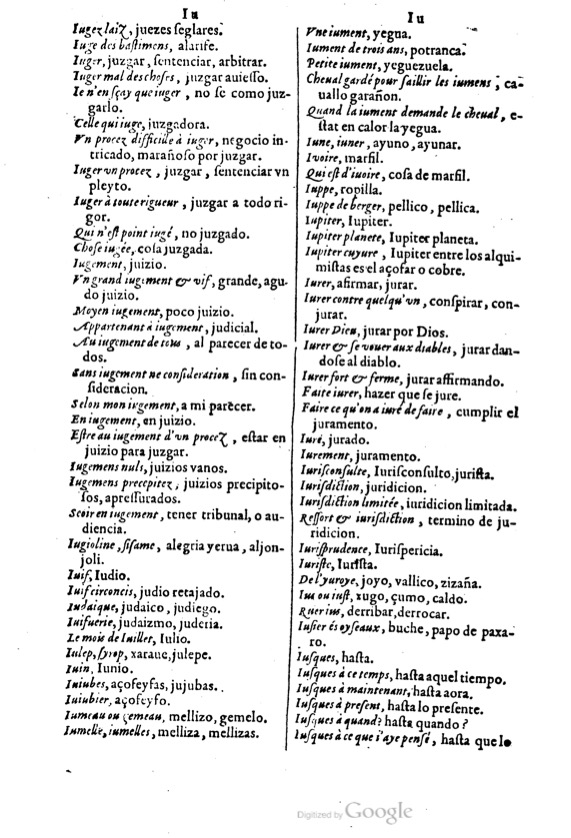 Iu
Iugez laiz, juezes seglares.
Iuge des bastimens, alarife.
Iuger, juzgar, sentenciar, arbitrar.
Iuger mal des choses, juzgar auiesso.
Ie n'en sçay que iuger, no se como juz-
garlo.
Celle qui iuge, juzgadora.
Vn procez difficile à iuger, negocio in-
tricado, marañoso por juzgar.
Iuger vn procez, juzgar, sentenciar vn
pleyto.
Iuger à toute rigueur, juzgar a todo ri-
gor.
Qui n'est point iugé, no juzgado.
Chose iugee, cosa juzgada.
Iugement, juizio.
Vn grand iugement & vif, grande, agu-
do juizio.
Moyen iugement, poco juizio.
Appartenant à iugement, judicial.
Au iugement de tous, al parecer de to-
dos.
Sans iugement ne consideration, sin con-
sideracion.
Selon mon iugement, a mi parecer.
En iugement, en juizio.
Estre au iugement d'vn procez, estar en
juizio para juzgar.
Iugemens nuls, juizios vanos.
Iugemens precepitez, juizios precipito-
sos, apressurados.
Seoir en iugement, tener tribunal, o au-
diencia.
Iugioline, sisame, alegria yerua, aljon-
joli.
Iuif, Iudio.
Iuif circoncis, judio retajado.
Iudaique, judaico, judiego.
Iuifuerie, judaizmo, juderia.
Le mois de Iuillet, Iulio.
Iulep, syrop, xaraue, julepe.
Iuin, Iunio.
Iuiubes, açofeyfas, jujubas.
Iuiubier, açofeyfo.
Iumeau ou gemeau, mellizo, gemelo.
Iumelle, iumelles, melliza, mellizas.
Iu
Vne iument, yegua.
Iument de trois ans, potranca.
Petite iument, yeguezuela.
Cheual gardé pour saillir les iumens, ca-
uallo garañon.
Quand la iument demande le cheual, e-
stat en calor la yegua.
Iune, iuner, ayuno, ayunar.
Ivoire, marfil.
Qui est d'iuoire, cosa de marfil.
Iuppe, ropilla.
Iuppe de berger, pellico, pellica.
Iupiter, Iupiter.
Iupiter planete, Iupiter planeta.
Iupiter cuyure, Iupiter entre los alqui-
mistas es el açofar o cobre.
Iurer, afirmar, jurar.
Iurer contre quelqu'vn, conspirar, con-
jurar.
Iurer Dieu, jurar por Dios.
Iurer & se vouer aux diables, jurar dan-
dose al diablo.
Iurer fort & ferme, jurar affirmando.
Faite iurer, hazer que se jure.
Faire ce qu'on a iuré de faire, cumplir el
juramento.
Iuré, jurado.
Iurement, juramento.
Iurisconsulte, Iurisconsulto, jurista.
Iurisdiction, juridicion.
Iurisdiction limitée, iuridicion limitada.
Ressort & iurisdiction, termino de ju-
ridicion.
Iurisprudence, Iurispericia.
Iuriste, Iurista.
De l'yuroye, joyo, vallico, zizaña.
Ius ou iust, xugo, çumo, caldo.
Ruer ius, derribar, derrocar.
Iusier és oyseaux, buche, papo de paxa-
ro.
Iusques, hasta.
Iusques à ce temps, hasta aquel tiempo.
Iusques à maintenant, hasta aora.
Iusques à present, hasta lo presente.
Iusques à quand? hasta quando?
Iusques à ce que i'aye pensé, hasta que lo
Digitized by Google